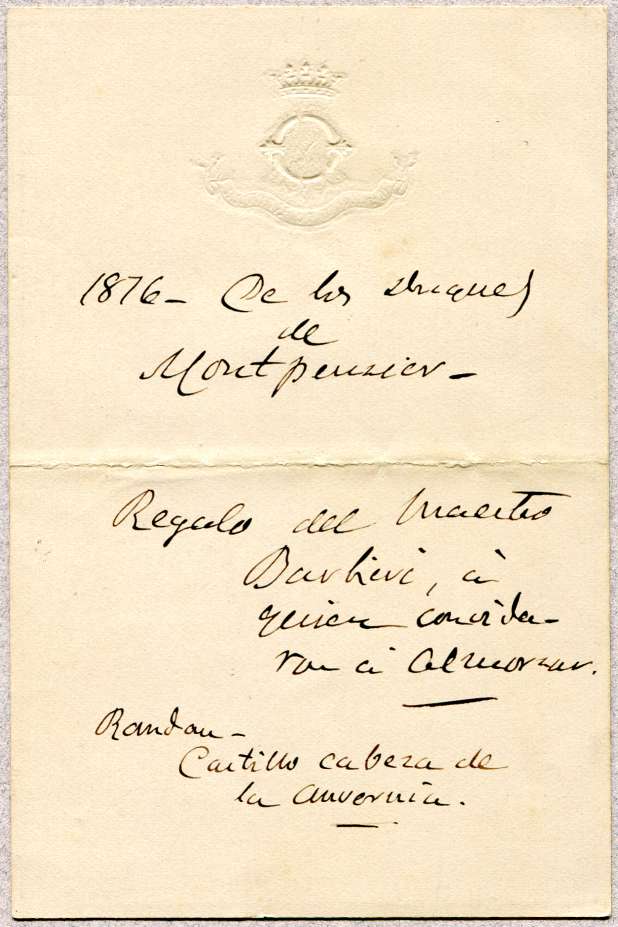 1876- De los Duques
de
Montpensier-
Regalo del Maestro
Barbieri, à
quien convida-
ron à almorzar.
Randan-
Castillo cabeza de
la Auvernia.